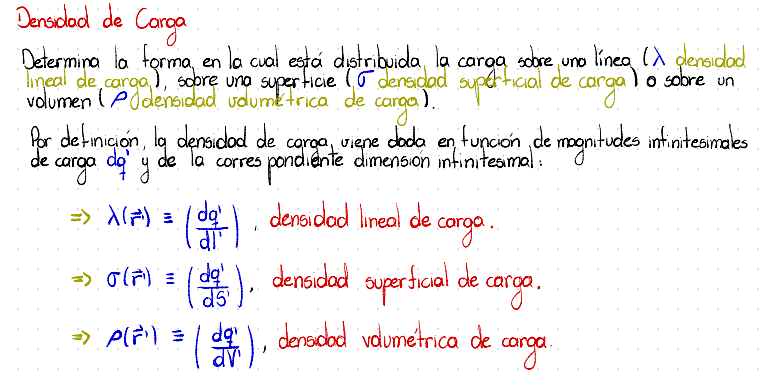 Densidad de Carga
Determina la forma en la cual está distribuida la carga sobre una línea (λ densidad
lineal de carga), sobre una superficie (σ densidad superficial de carga) o sobre un
volumen (ρ densidad volumétrica de carga).
Por definición, la densidad de carga, viene dada en función de magnitudes infinitesimales
de carga dq' y de la correspondiente dimensión infinitesimal:
⇒ λ(r⃗') ≡ (dq'/dl'), densidad lineal de carga.
⇒ σ(r⃗') ≡ (dq'/dS'), densidad superficial de carga.
⇒ ρ(r⃗') ≡ (dq'/dV'), densidad volumétrica de carga.